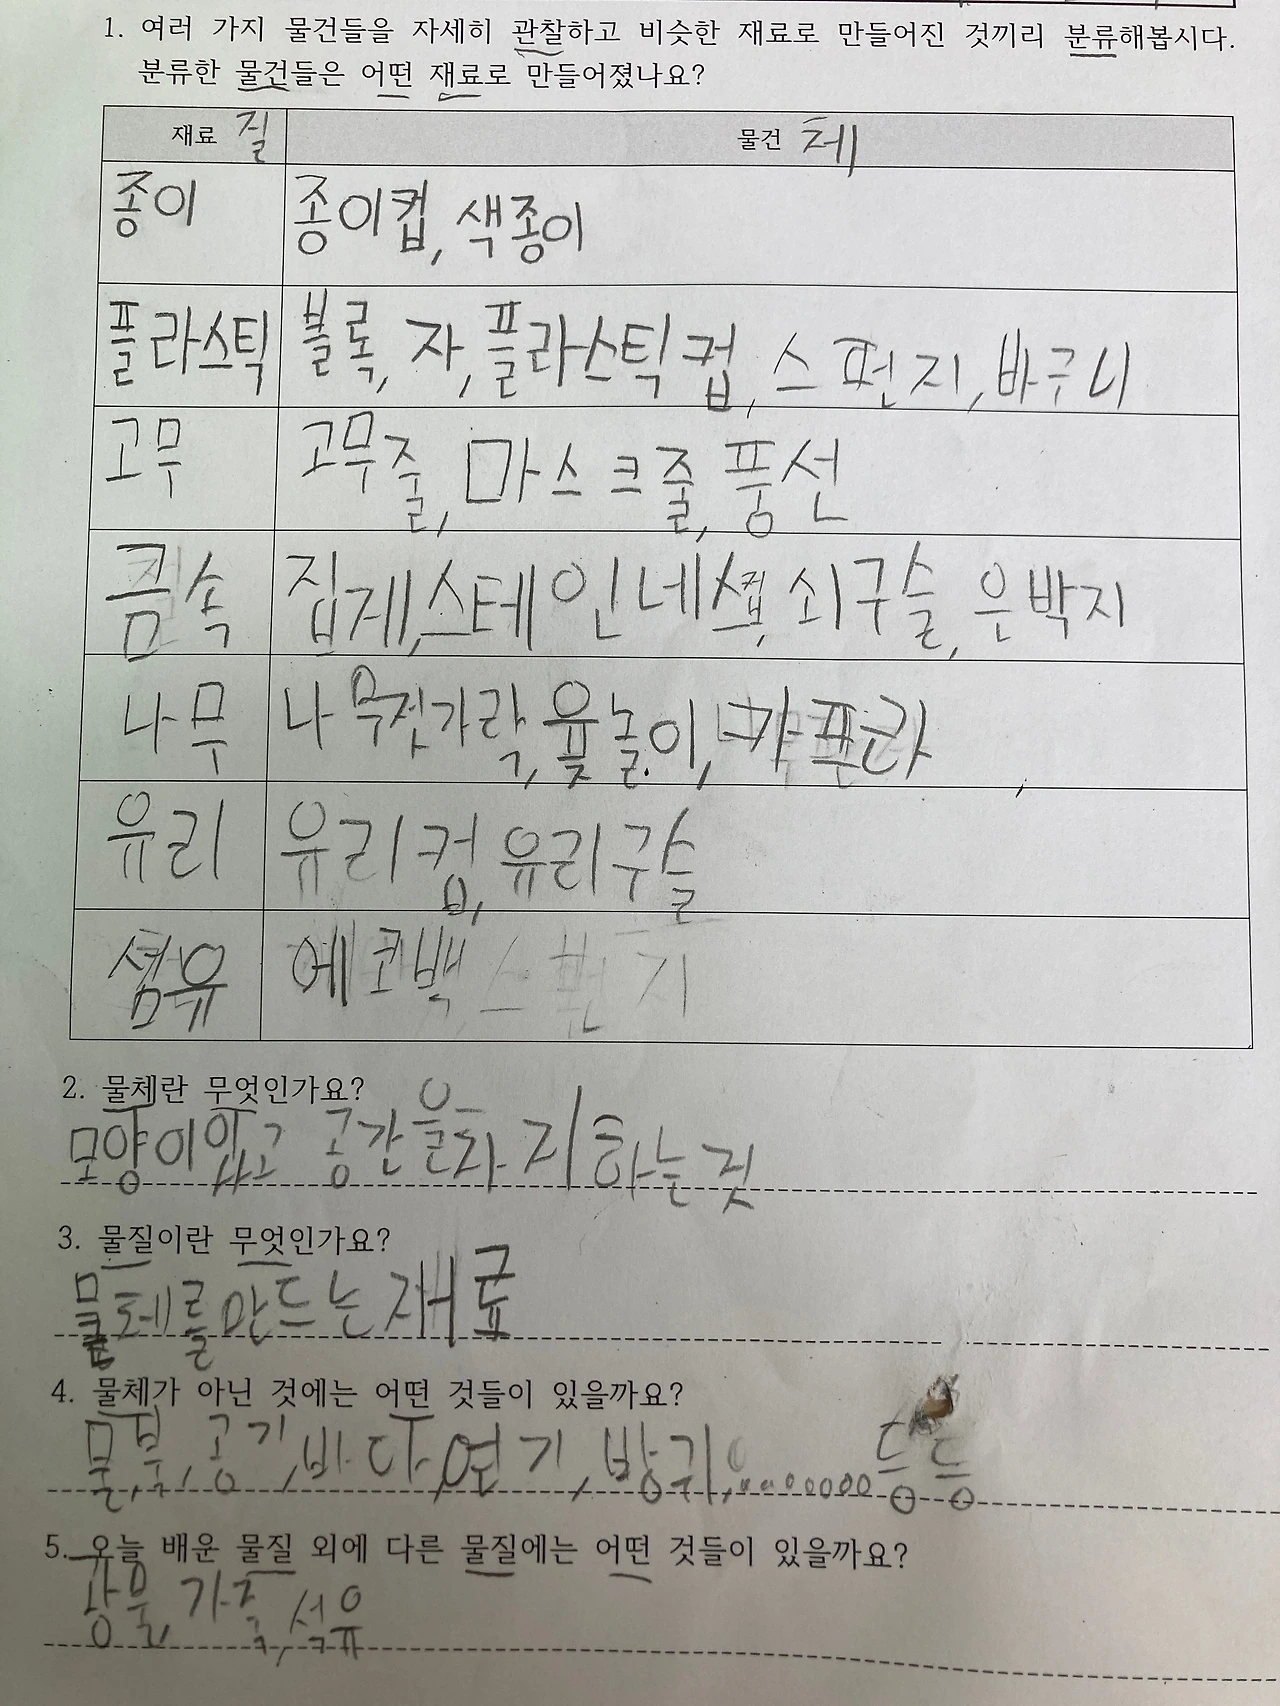 1. 여러 가지 물건들을 자세히 관찰하고 비슷한 재료로 만들어진 것끼리 분류해봅시다.
분류한 물건들은 어떤 재료로 만들어졌나요?
재료 질 물건 체
종이 종이컵, 색종이
플라스틱 블록, 자, 플라스틱 컵, 스펀지, 바구니
고무 고무줄, 마스크줄, 풍선
금속 집게, 스테인네스컵, 쇠구슬, 은박지
나무 나무젓가락, 윷놀이, 캬프라
유리 유리컵, 유리구슬
섬유 에코백
2. 물체란 무엇인가요?
모양이 있고 공간을 차지하는 것
3. 물질이란 무엇인가요?
물체를 만드는 재료
4. 물체가 아닌 것에는 어떤 것들이 있을까요?
물, 불, 공기, 바다, 연기, 방귀, 등등
5. 오늘 배운 물질 외에 다른 물질에는 어떤 것들이 있을까요?
광물, 가죽, 석유